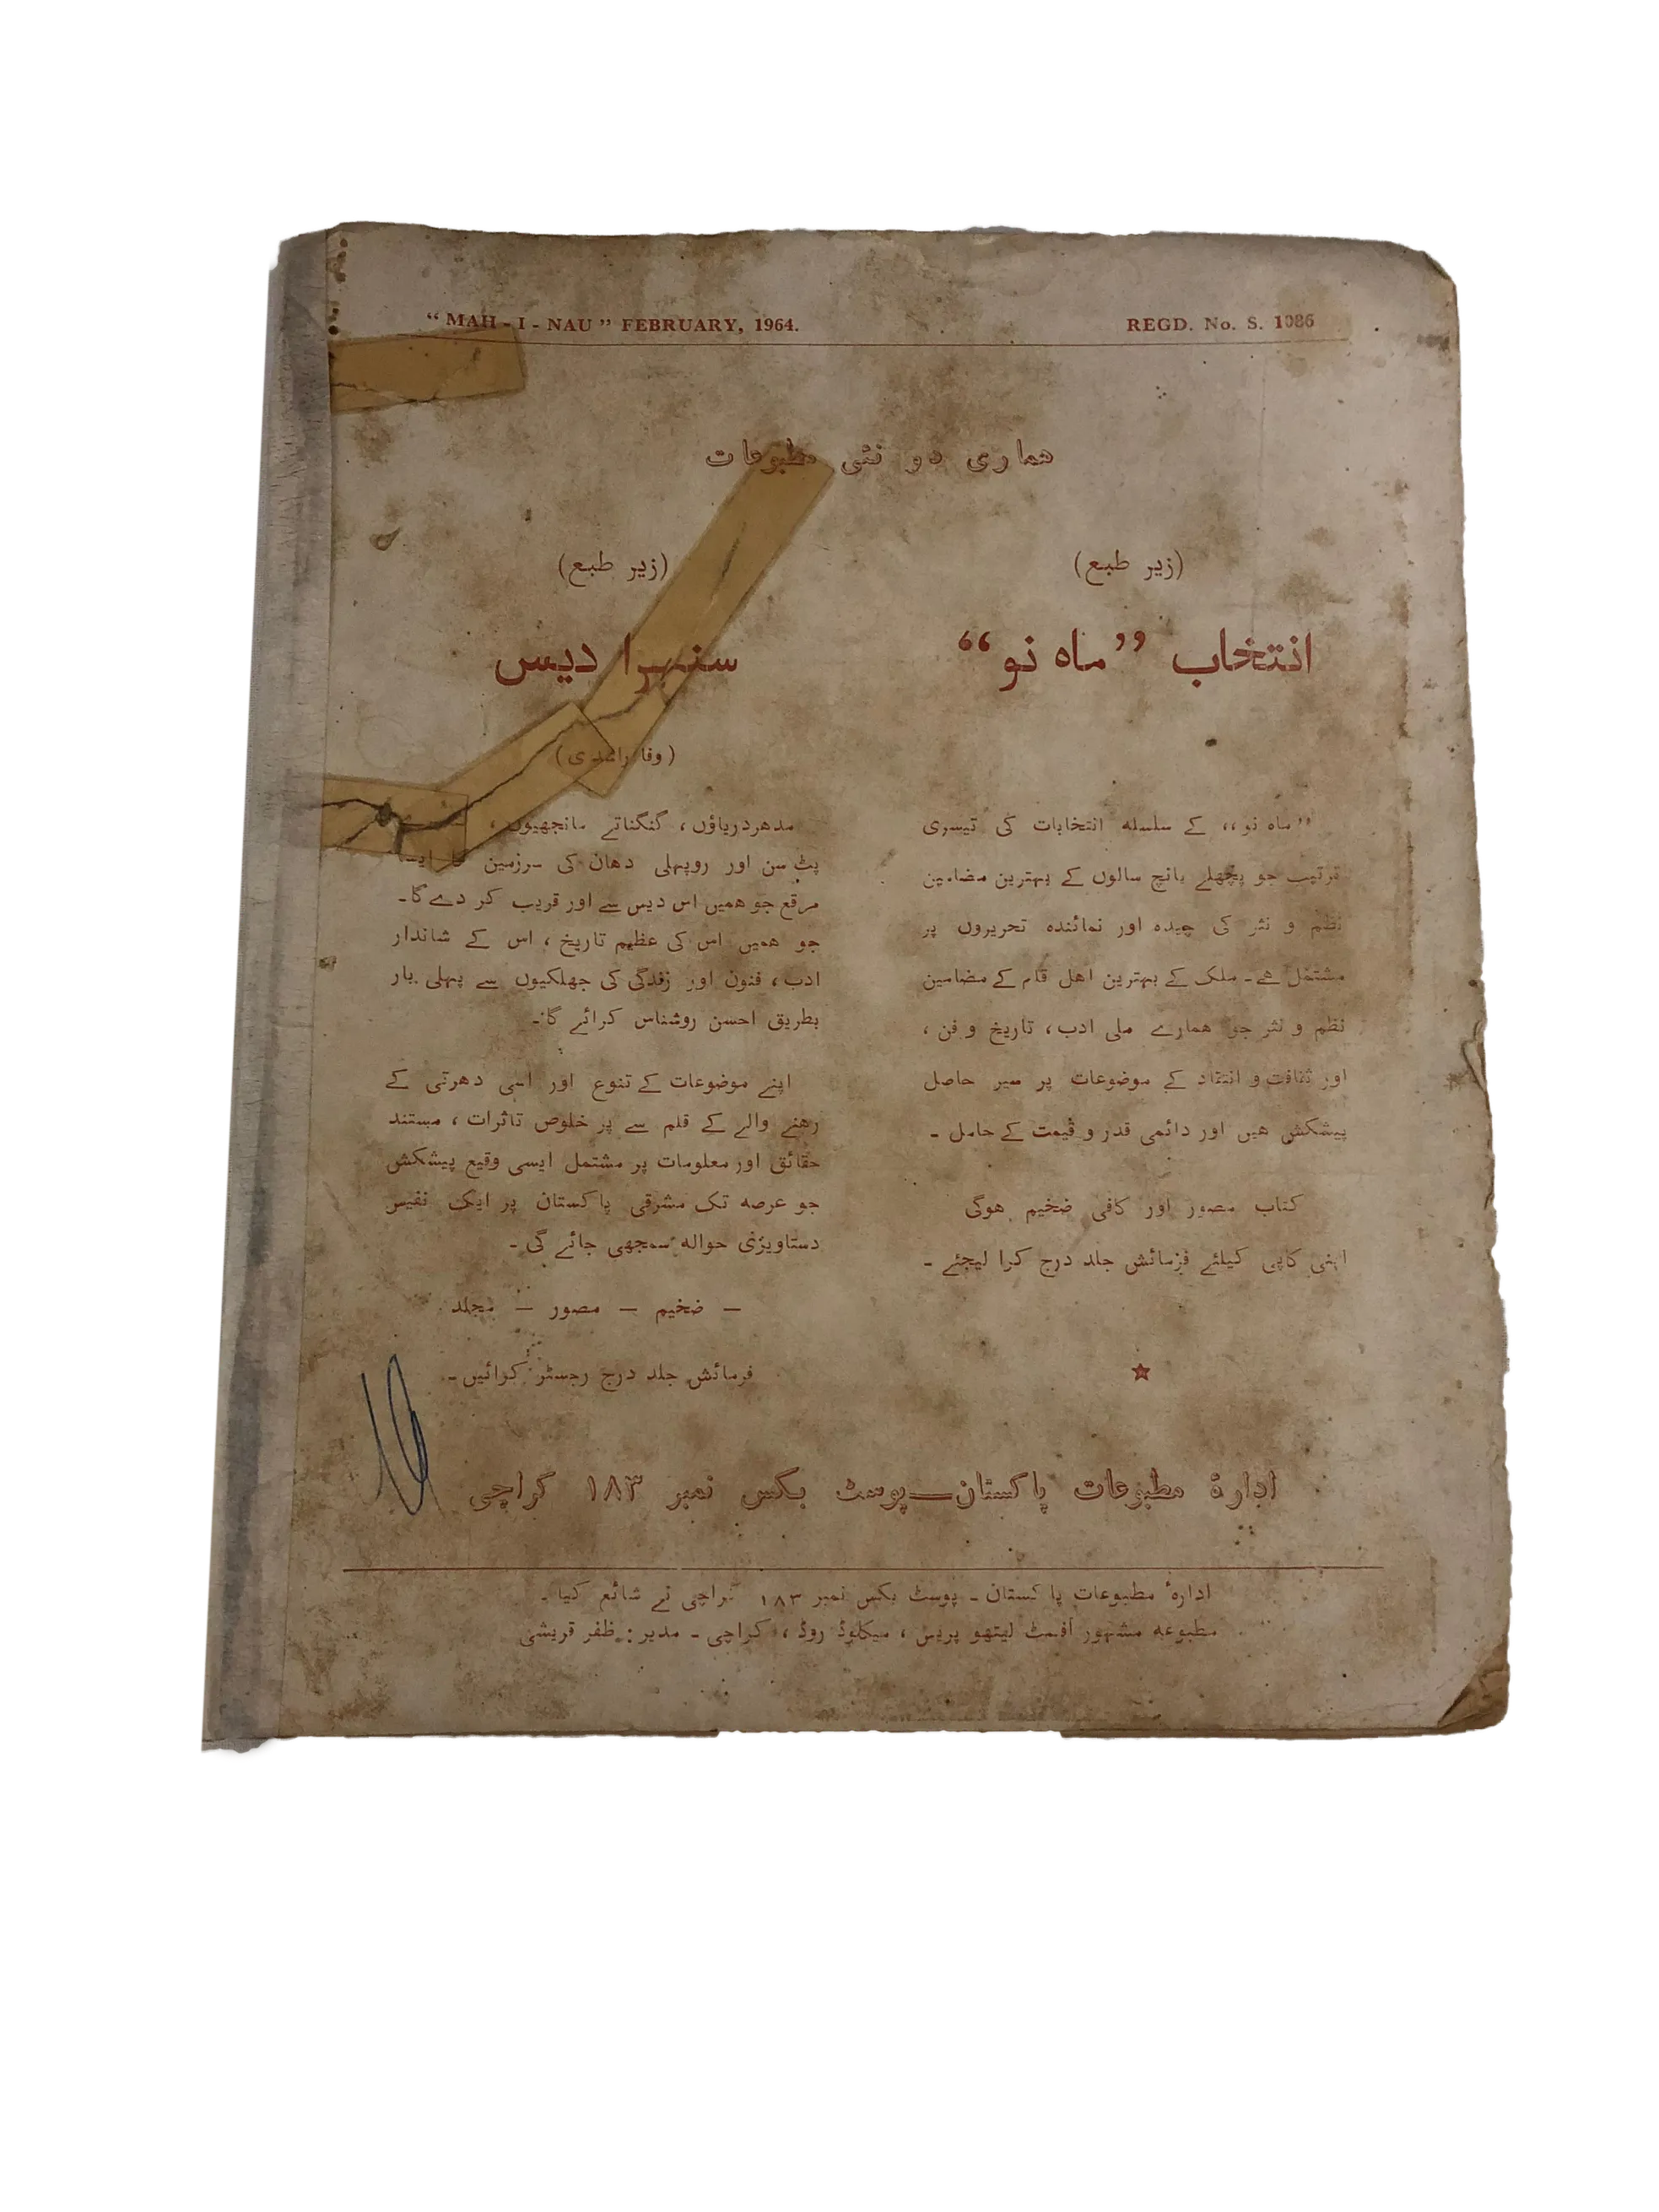 “ MAH - I - NAU ” FEBRUARY, 1964. REGD. No. S. 1086
هماری دو نئی مطبوعات
(زیر طبع)
انتخاب ”ماه نو“
”ماه نو،، کے سلسلہ انتخابات کی تیسری
ترتیب جو پچھلے پانچ سالوں کے بہترین مضامین
نظم و نثر کی چیدہ اور نمائندہ تحریروں پر
مشتمل ھے۔ ملک کے بہترین اھل قلم کے مضامین
نظم و نثر جو ھمارے ملی ادب، تاریخ و فن ،
اور ثقافت و انتقاد کے موضوعات پر سیر حاصل
پیشکش ھیں اور دائمی قدر و قیمت کے حامل ۔
کتاب مصور اور کافی ضخیم ھوگی
اپنی کاپی کیلئے فرمائش جلد درج کرا لیجئے ۔
(زیر طبع)
سنہرا دیس
(وفا راشدی)
مدھر دریاؤں، گنگناتے مانجھیوں ،
پٹ سن اور روپہلی دھان کی سرزمین کا ایسا
مرقع جو ھمیں اس دیس سے اور قریب کر دے گا۔
جو ھمیں اس کی عظیم تاریخ ، اس کے شاندار
ادب، فنون اور زندگی کی جھلکیوں سے پہلی بار
بطریق احسن روشناس کرائے گا۔
اپنے موضوعات کے تنوع اور اسی دھرتی کے
رھنے والے کے قلم سے پر خلوص تاثرات ، مستند
حقائق اور معلومات پر مشتمل ایسی وقیع پیشکش
جو عرصہ تک مشرقی پاکستان پر ایک نفیس
دستاویزی حوالہ سمجھی جائے گی ۔
— ضخیم — مصور — مجلد
فرمائش جلد درج رجسٹر کرائیں۔
ادارۂ مطبوعات پاکستان—پوسٹ بکس نمبر ۱۸۳ کراچی
ادارۂ مطبوعات پاکستان ۔ پوسٹ بکس نمبر ۱۸۳ کراچی نے شائع کیا ۔
مطبوعہ مشہور آفسٹ لیتھو پریس ، میکلوڈ روڈ ، کراچی ۔ مدیر : ظفر قریشی